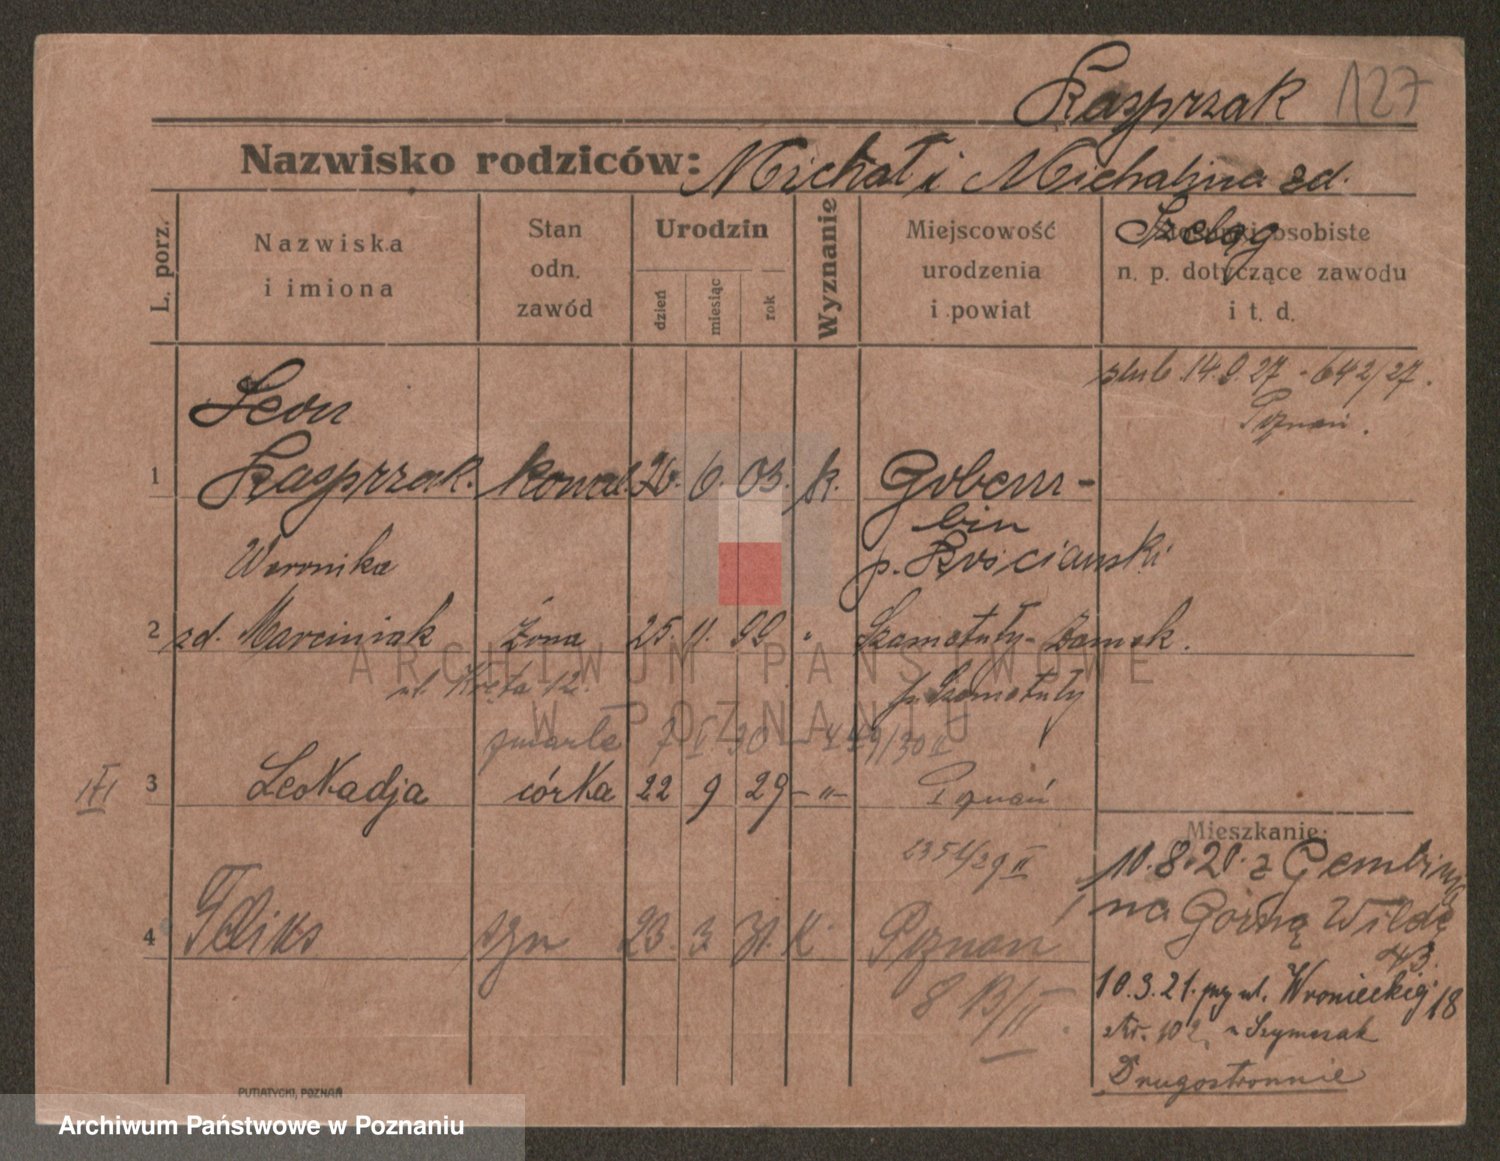 Kasprzak 127
Nazwisko rodziców: Michał i Michalina zd.
Szeląg
L. porz.
Nazwiska
i imiona
Stan
odn.
zawód
Urodzin
dzień
miesiąc
rok
Wyznanie
Miejscowość
urodzenia
i powiat
osobiste
n. p. dotyczące zawodu
i t. d.
ślub 14.9.27 - 642/27.
Poznań.
Leon
1 Kasprzak. kowal. 26. 6. 03. k. Gobem-
bin
p. Kościański
Weronika
2 zd. Marciniak żona 25. 11. 99 " Szamotuły-Zamek.
ul. Kręta 12. p. Szamotuły
zmarła 7 II 30
3 Leokadja córka 22 9 29 -"- Poznań
2351/29 II
4 Feliks syn 23. 3. 31. K. Poznań
813/II.
Mieszkanie:
10.8.20. z Gembin
na Górną Wildę
43.
10.3.21. przy ul. Wronieckiej 18
u Szymczak
Drugostronnie
PUTIATYCKI, POZNAŃ
ARCHIWUM PAŃSTWOWE
W POZNANIU
Archiwum Państwowe w Poznaniu